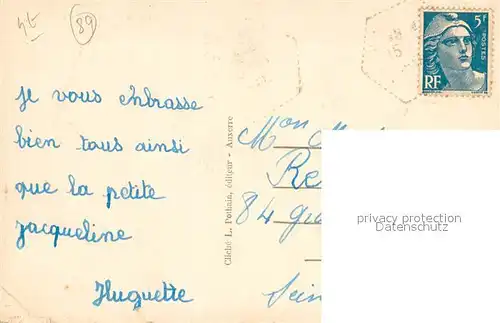 89
5F
POSTES
RF
je vous enbrasse
bien tous ainsi
que la petite
jacqueline
Huguette
Cliché L. Pothain, éditeur - Auxerre
Mon
Re
84
Sein
privacy protection
Datenschutz